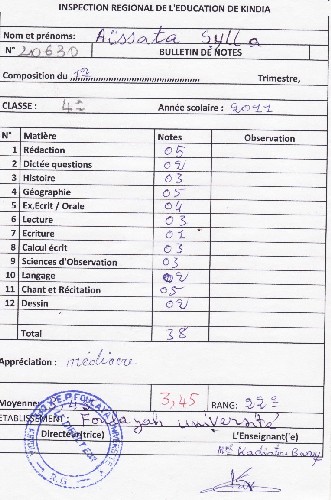 INSPECTION REGIONAL DE L'EDUCATION DE KINDIA
Nom et prénoms: Aïssata Sylla
N° 20630 BULLETIN DE NOTES
Composition du 1er Trimestre,
CLASSE : 4e Année scolaire : 2011
N° Matière Notes Observation
1 Rédaction 05
2 Dictée questions 02
3 Histoire 03
4 Géographie 05
5 Ex,Ecrit / Orale 04
6 Lecture 03
7 Ecriture 01
8 Calcul écrit 03
9 Sciences d'Observation 03
10 Langage 02
11 Chant et Récitation 05
12 Dessin 02
Total 38
Appréciation : médiocre
Moyenne 3,45 RANG: 22e
ETABLISSEMENT : université
Directeur(trice) L'Enseignant('e)